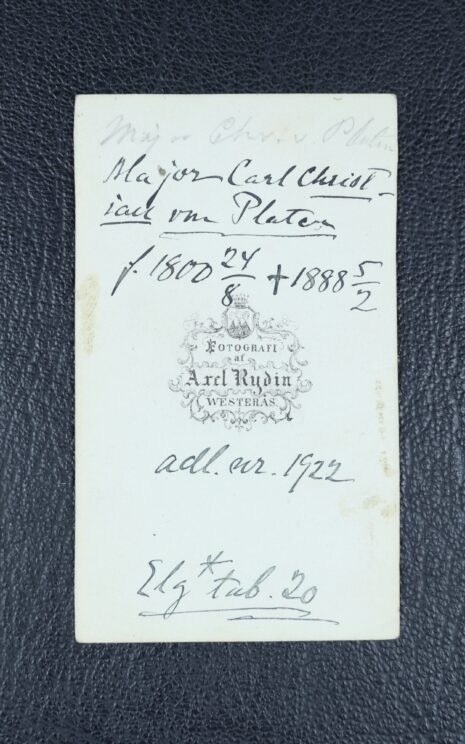 Major Chr. v. Platen
Major Carl Christ-
ian von Platen
f. 1800 24/8 + 1888 5/2
FOTOGRAFI
af
Axel Rydin
WESTERÅS.
adl. nr. 1922
Elg* tab. 20